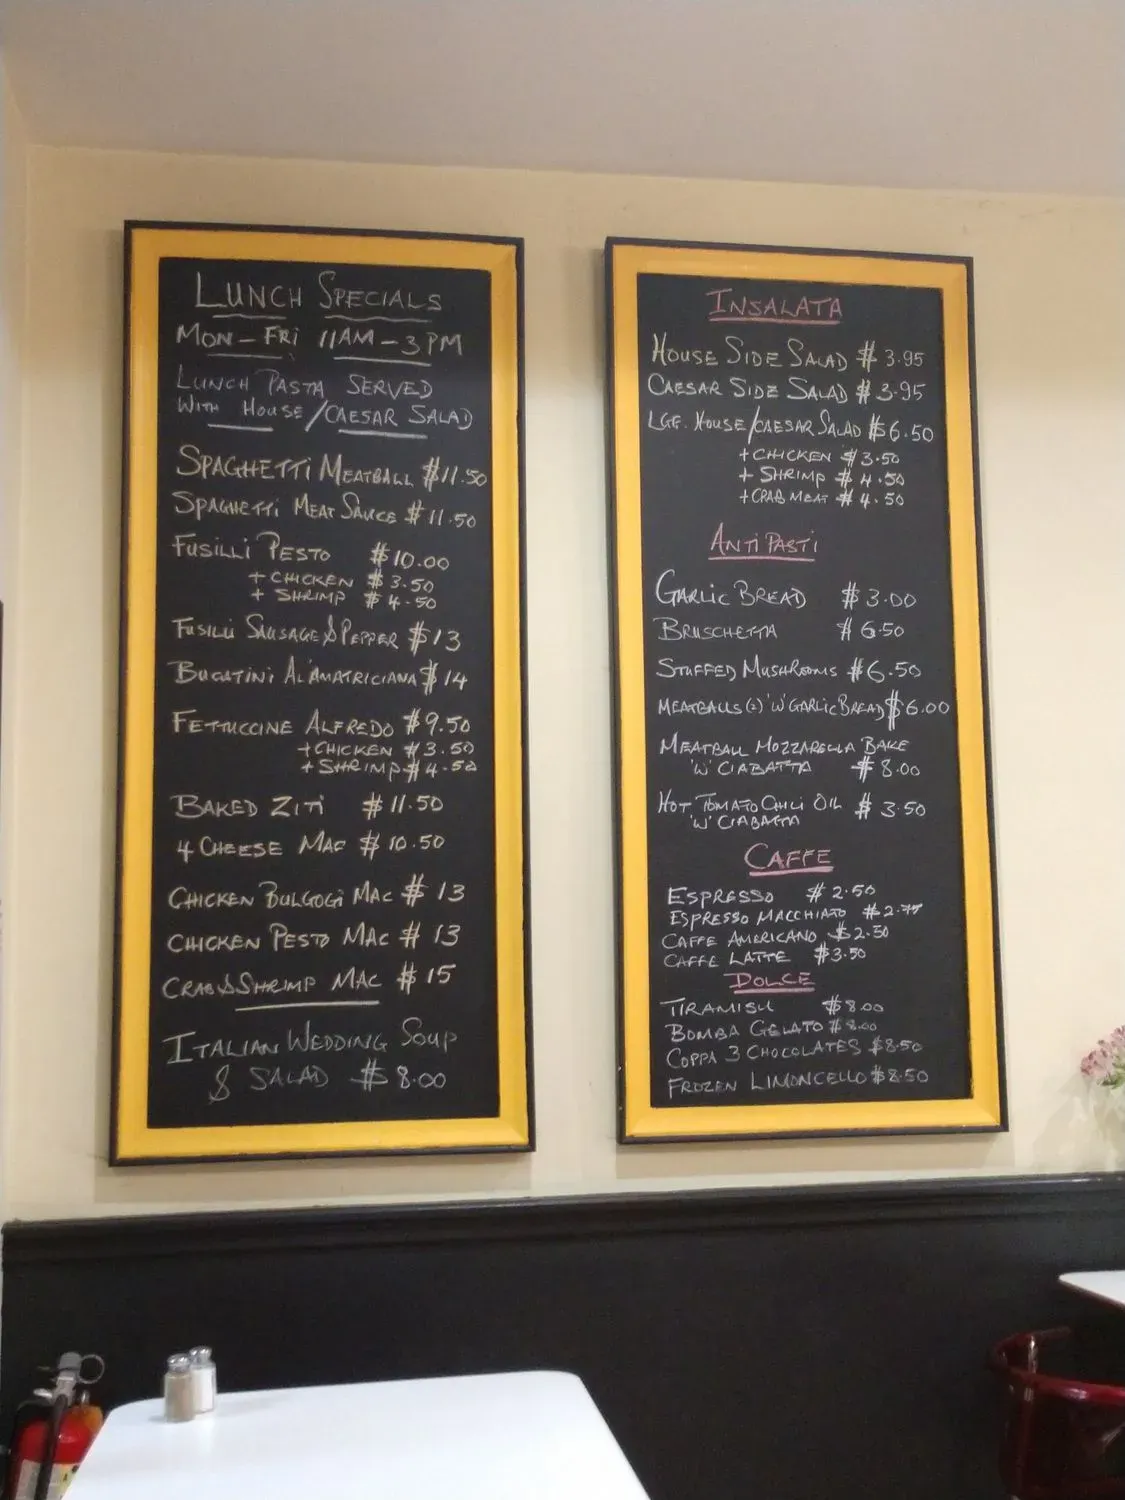 LUNCH SPECIALS
MON-FRI 11AM-3PM
LUNCH PASTA SERVED
WITH HOUSE/CAESAR SALAD
SPAGHETTI MEATBALL $11.50
SPAGHETTI MEAT SAUCE $11.50
FUSILLI PESTO $10.00
+ CHICKEN $3.50
+ SHRIMP $4.50
FUSILLI SAUSAGE & PEPPER $13
BUCATINI AL'AMATRICIANA $14
FETTUCCINE ALFREDO $9.50
+CHICKEN $3.50
+SHRIMP $4.50
BAKED ZITI $11.50
4 CHEESE MAC $10.50
CHICKEN BULGOGI MAC $13
CHICKEN PESTO MAC $13
CRAB & SHRIMP MAC $15
ITALIAN WEDDING SOUP
& SALAD $8.00
INSALATA
HOUSE SIDE SALAD $3.95
CAESAR SIDE SALAD $3.95
LGE. HOUSE/CAESAR SALAD $6.50
+CHICKEN $3.50
+ SHRIMP $4.50
+CRAB MEAT $4.50
ANTIPASTI
GARLIC BREAD $3.00
BRUSCHETTA $6.50
STUFFED MUSHROOMS $6.50
MEATBALLS (2) 'W' GARLIC BREAD $6.00
MEATBALL MOZZARELLA BAKE
'W' CIABATTA $8.00
HOT TOMATO CHILI OIL $3.50
'W' CIABATTA
CAFFE
ESPRESSO $2.50
ESPRESSO MACCHIATO $2.75
CAFFE AMERICANO $2.50
CAFFE LATTE $3.50
DOLCE
TIRAMISU $8.00
BOMBA GELATO $8.00
COPPA 3 CHOCOLATES $8.50
FROZEN LIMONCELLO $8.50